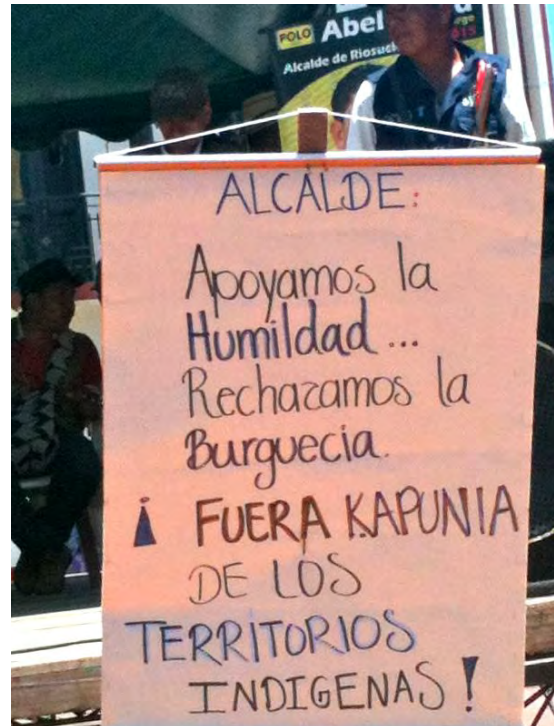 POLO Abel
2015
Alcalde de Riosuc
ALCALDE:
Apoyamos la
Humildad ...
Rechazamos la
Burguecia.
¡ FUERA KAPUNIA
DE LOS
TERRITORIOS
INDIGENAS !